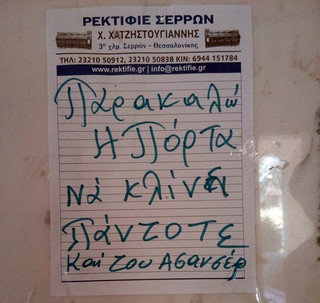 ΡΕΚΤΙΦΙΕ ΣΕΡΡΩΝ
Χ. ΧΑΤΖΗΣΤΟΥΓΙΑΝΝΗΣ
3ο χλμ. Σερρών - Θεσσαλονίκης
ΤΗΛ: 23210 50912, 23210 50838 ΚΙΝ: 6944 151784
www.rektifie.gr | info@rektifie.gr
Παρακαλώ
Η Πόρτα
Νά κλίνει
Πάντοτε
και του Ασανσέρ